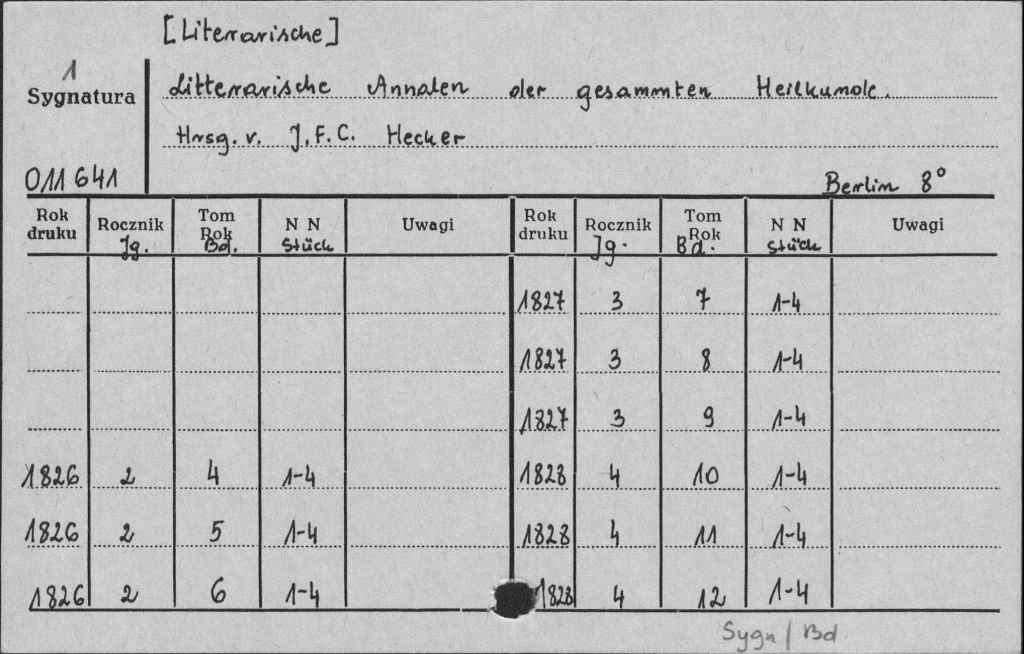 [Literarische]
1
Sygnatura
Litterarische Annalen der gesammten Heilkunde.
Hrsg. v. J.F.C. Hecker
011641
Berlin 8°
Rok druku Rocznik Jg. Tom Rok Bd. N N Stück Uwagi Rok druku Rocznik Jg. Tom Rok Bd. N N Stück Uwagi
1827 3 7 1-4
1827 3 8 1-4
1827 3 9 1-4
1826 2 4 1-4 1828 4 10 1-4
1826 2 5 1-4 1828 4 11 1-4
1826 2 6 1-4 1828 4 12 1-4
Sygn / Bd